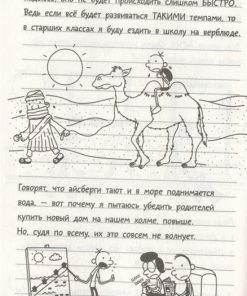 оно не будет происходить слишком БЫСТРО.
Ведь если всё будет развиваться ТАКИМИ темпами, то
в старших классах я буду ездить в школу на верблюде.
Говорят, что айсберги тают и в море поднимается
вода, — вот почему я пытаюсь убедить родителей
купить новый дом на нашем холме, повыше.
Но, судя по всему, их это совсем не волнует.